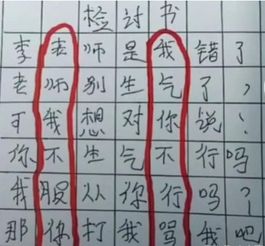 检讨书
李老师是我错了
老师别生气了，
可我想对你说！
你不生气不行吗
我服从你行吗？
那你打我骂我吧